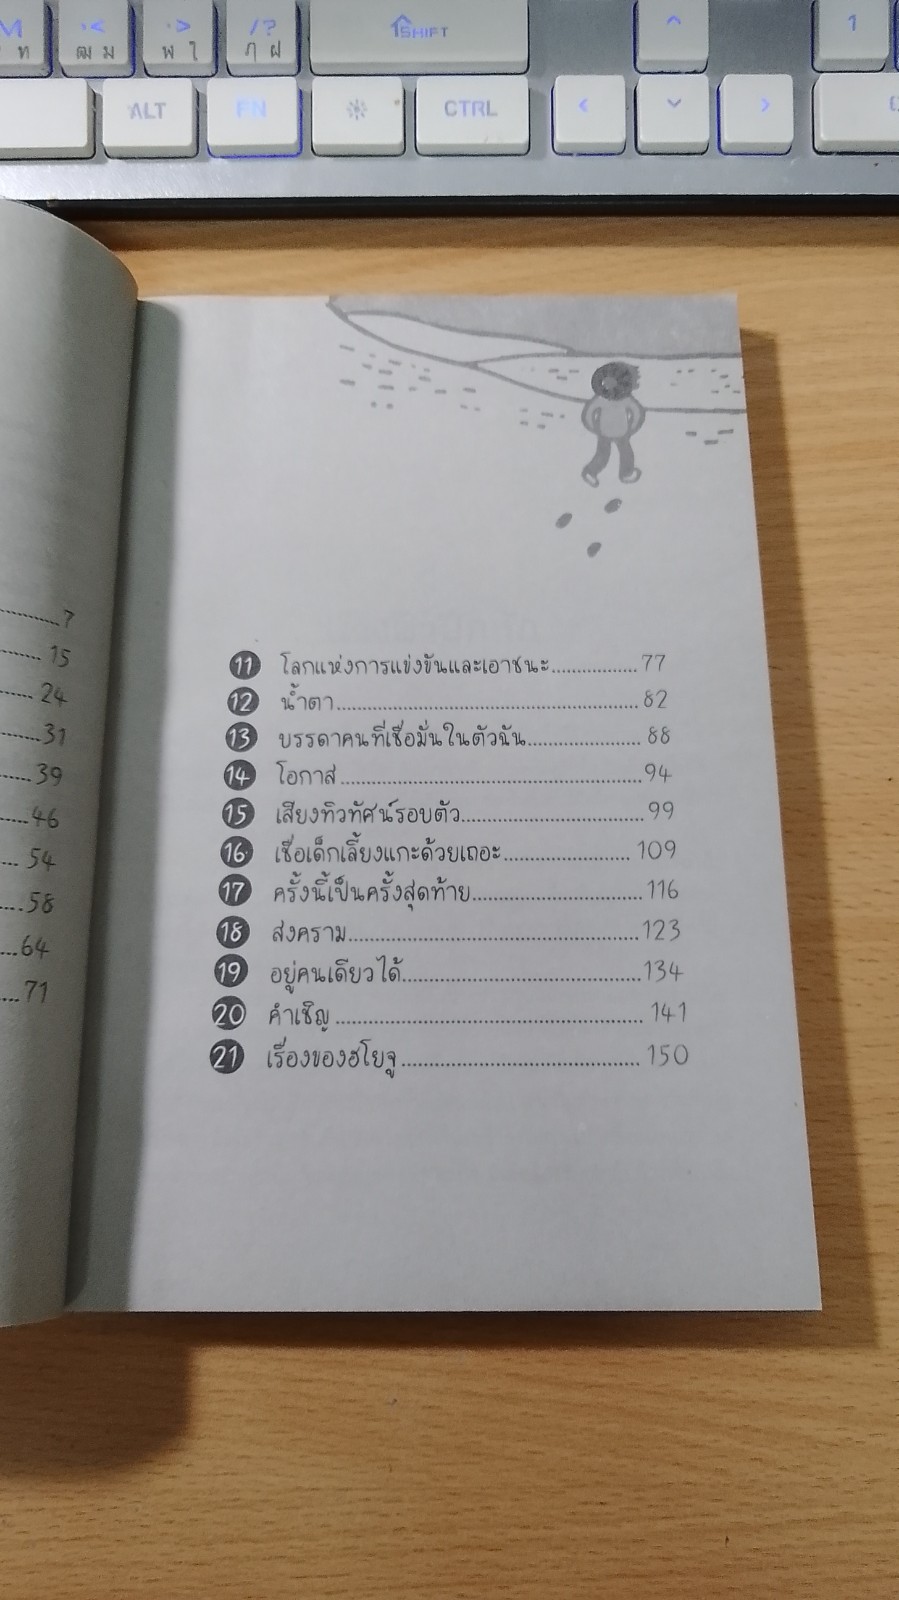 M ·< ·> /? SHIFT ^ 1
ท ฒ ม ฬ ใ ฦ ฝ
ALT FN CTRL < >
7
15
24
31
39
46
54
58
64
71
11 โลกแห่งการแข่งขันและเอาชนะ 77
12 น้ำตา 82
13 บรรดาคนที่เชื่อมั่นในตัวฉัน 88
14 โอกาส 94
15 เสียงทิวทัศน์รอบตัว 99
16 เชื่อเด็กเลี้ยงแกะด้วยเถอะ 109
17 ครั้งนี้เป็นครั้งสุดท้าย 116
18 สงคราม 123
19 อยู่คนเดียวได้ 134
20 คำเชิญ 141
21 เรื่องของฮโยจู 150